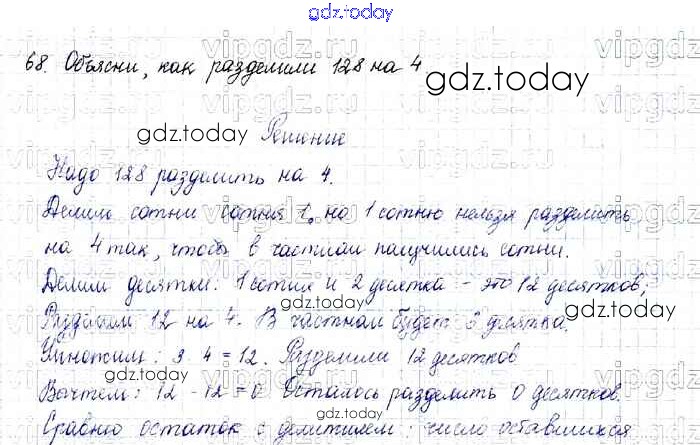 gdz.today
68. Объясни, как разделили 128 на 4
gdz.today
gdz.today
Решение
Надо 128 разделить на 4.
Делим сотни сотня 1, но 1 сотню нельзя разделить
на 4 так, чтобы в частном получились сотни.
Делим десятки: 1 сотня и 2 десятка - это 12 десятков;
Разделим 12 на 4. В частном будет 3 десятка.
Умножим: 3 4 = 12. Разделили 12 десятков
Вычтем: 12 - 12 = 0 Осталось разделить 0 десятков.
Сравню остаток с делителем: число оставшихся
gdz.today
gdz.today
gdz.today